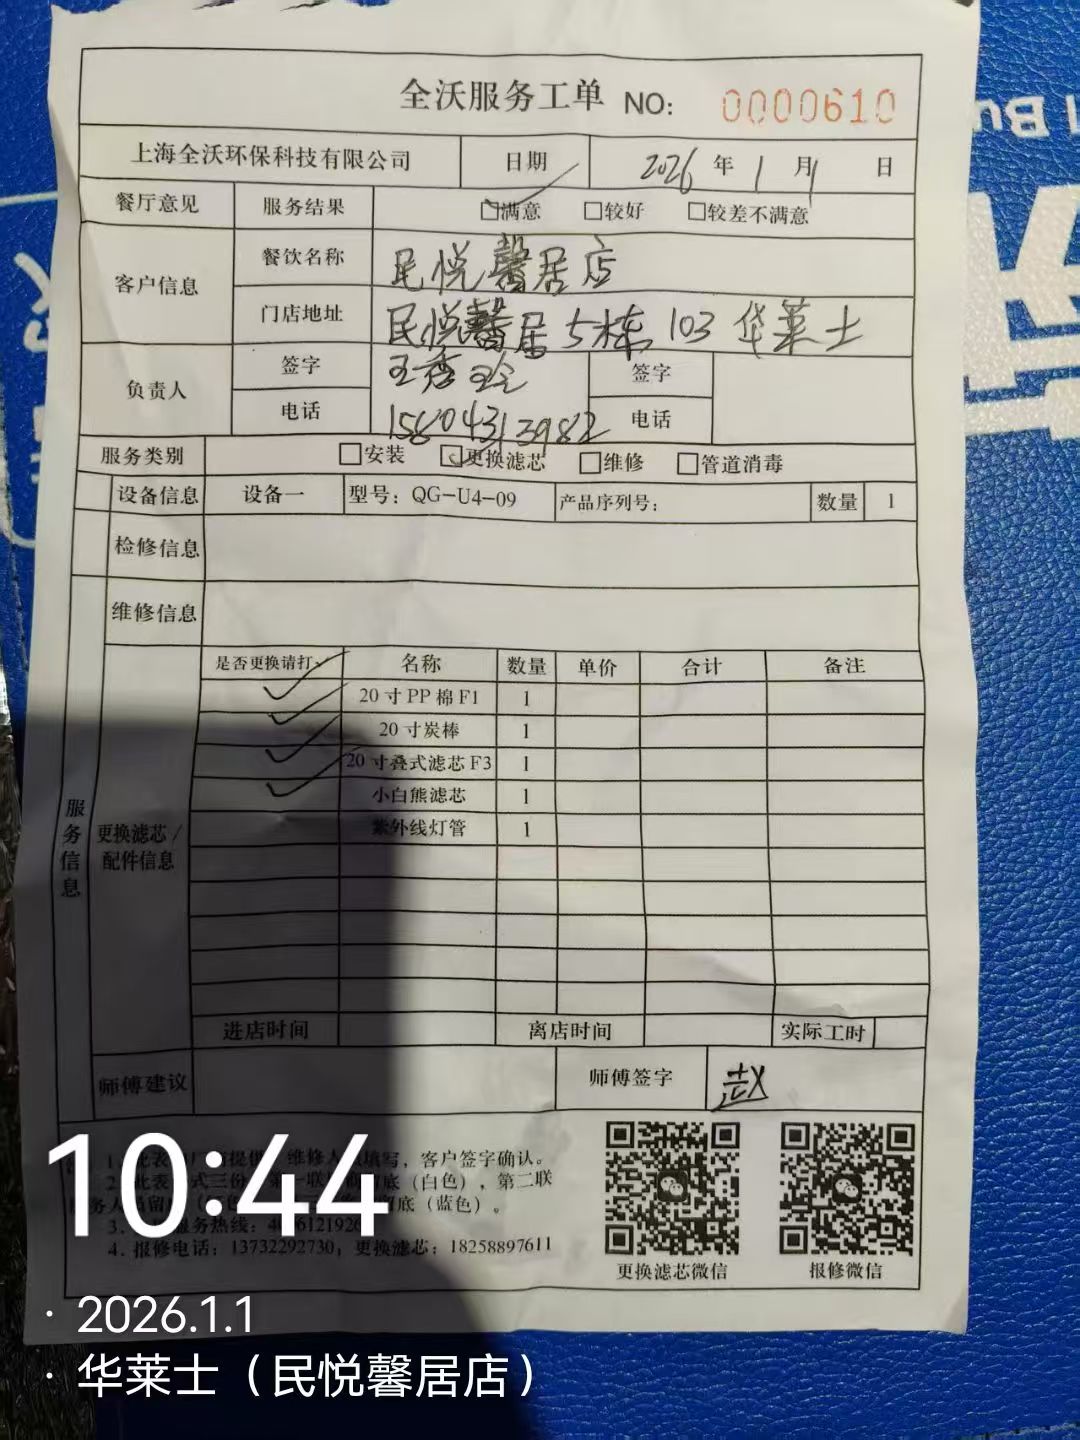 全沃服务工单 NO: 0000610
上海全沃环保科技有限公司 日期 2026 年 1 月 1 日
餐厅意见 服务结果 满意 较好 较差不满意
客户信息 餐饮名称 民悦馨居店
门店地址 民悦馨居5栋 103 华莱士
负责人 签字 签字
电话 15804313982 电话
服务类别 安装 更换滤芯 维修 管道消毒
设备信息 设备一 型号：QG-U4-09 产品序列号： 数量 1
检修信息
维修信息
是否更换请打✓ 名称 数量 单价 合计 备注
✓ 20寸PP棉F1 1
✓ 20寸炭棒 1
✓ 20寸叠式滤芯F3 1
✓ 小白熊滤芯 1
紫外线灯管 1
服务信息
更换滤芯/
配件信息
进店时间 离店时间 实际工时
师傅建议 师傅签字 赵
填写，客户签字确认。
底（白色），第二联
留底（蓝色）。
3. 服务热线：
4. 报修电话：13732292730，更换滤芯：18258897611
更换滤芯微信 报修微信
10:44
· 2026.1.1
· 华莱士（民悦馨居店）